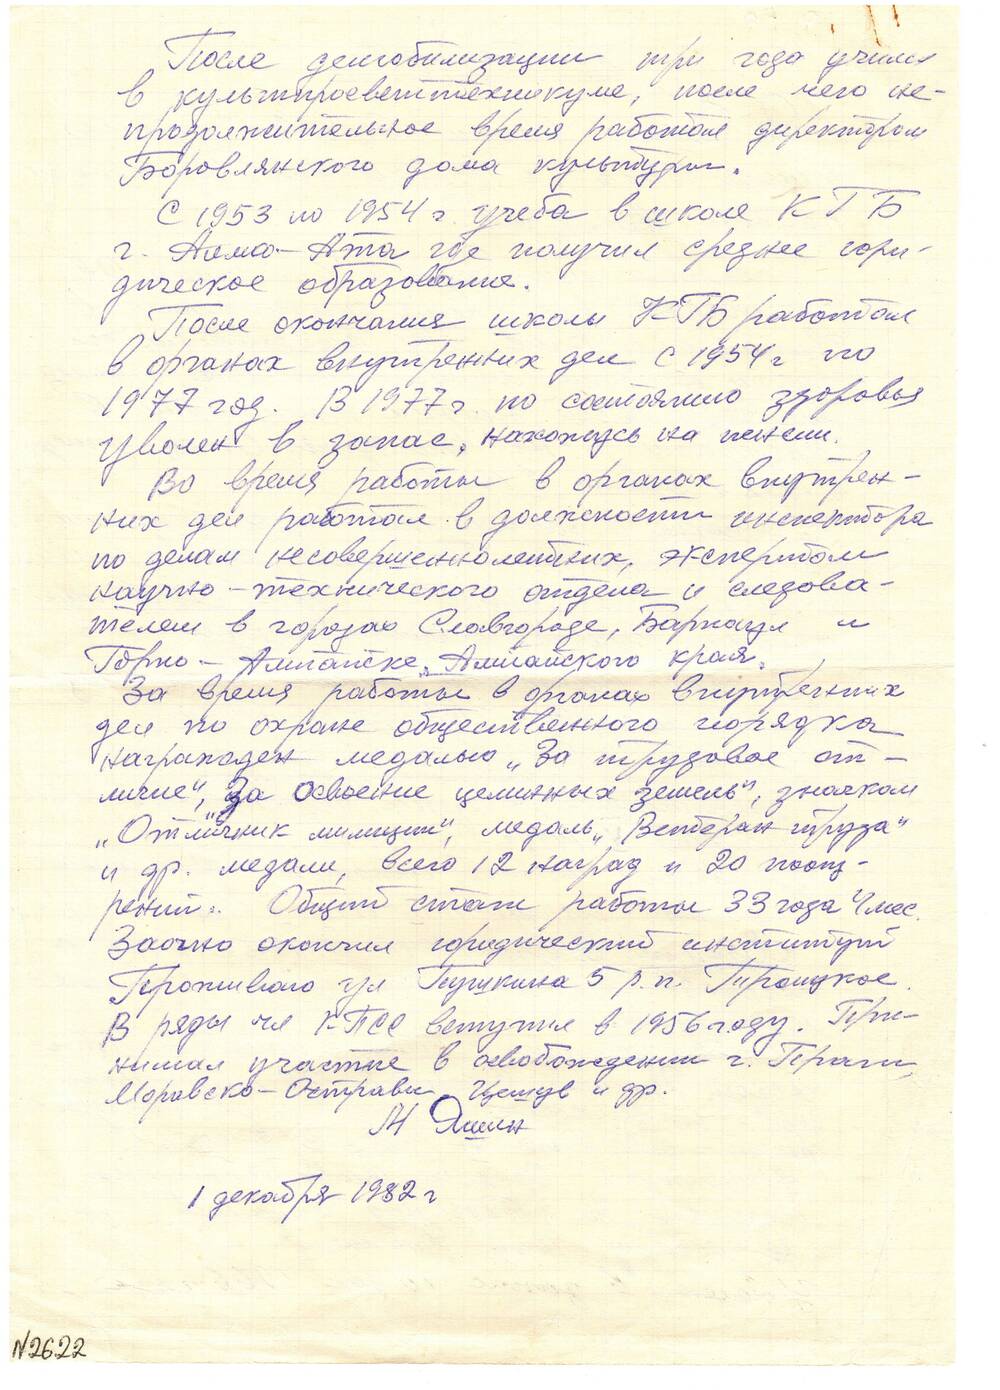 После демобилизации три года учился
в культпросветтехникуме, после чего не-
продолжительное время работал директором
Боровлянского дома культуры.
С 1953 по 1954 г. учеба в школе КГБ
г. Алма-Ата где получил среднее юри-
дическое образование.
После окончания школы КГБ работал
в органах внутренних дел с 1954 г по
1977 год. В 1977 г. по состоянию здоровья
уволен в запас, нахожусь на пенсии.
Во время работы в органах внутрен-
них дел работал в должности инспектора
по делам несовершеннолетних, экспертом
научно-технического отдела и следова-
телем в городах Славгороде, Барнаул и
Горно-Алтайске, Алтайского края.
За время работы в органах внутренних
дел по охране общественного порядка
награжден медалью „За трудовое от-
личие", „За освоение целинных земель", значком
„Отличник милиции", медаль „Ветеран труда"
и др. медали, всего 12 наград и 20 поощ-
рений. Общий стаж работы 33 года 4 мес.
Заочно окончил юридический институт
Проживаю ул Пушкина 5 р.п. Троицкое.
В ряды чл КПСС вступил в 1956 году. При-
нимал участие в освобождении г. Праги,
Моравско-Остравы Цешув и др.
Яшин
1 декабря 1982 г
N2622